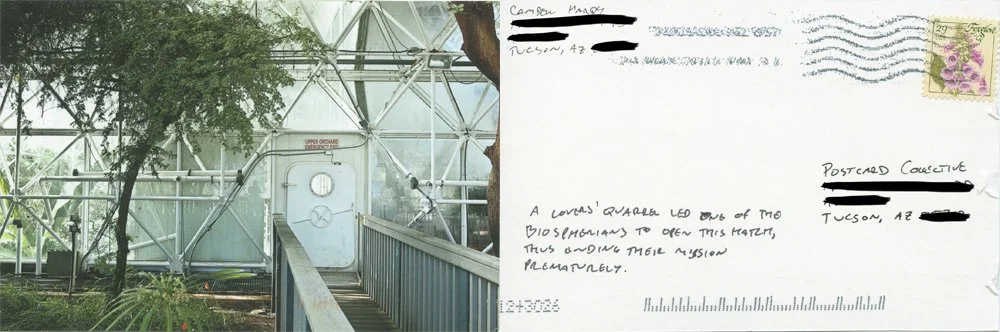 UPPER ORCHARD
EMERGENCY EXIT
CAMDEN HARDY
TUCSON, AZ
29
POSTCARD COLLECTIVE
TUCSON, AZ
A LOVERS' QUARREL LED ONE OF THE
BIOSPHERIANS TO OPEN THIS HATCH,
THUS ENDING THEIR MISSION
PREMATURELY.
1243026